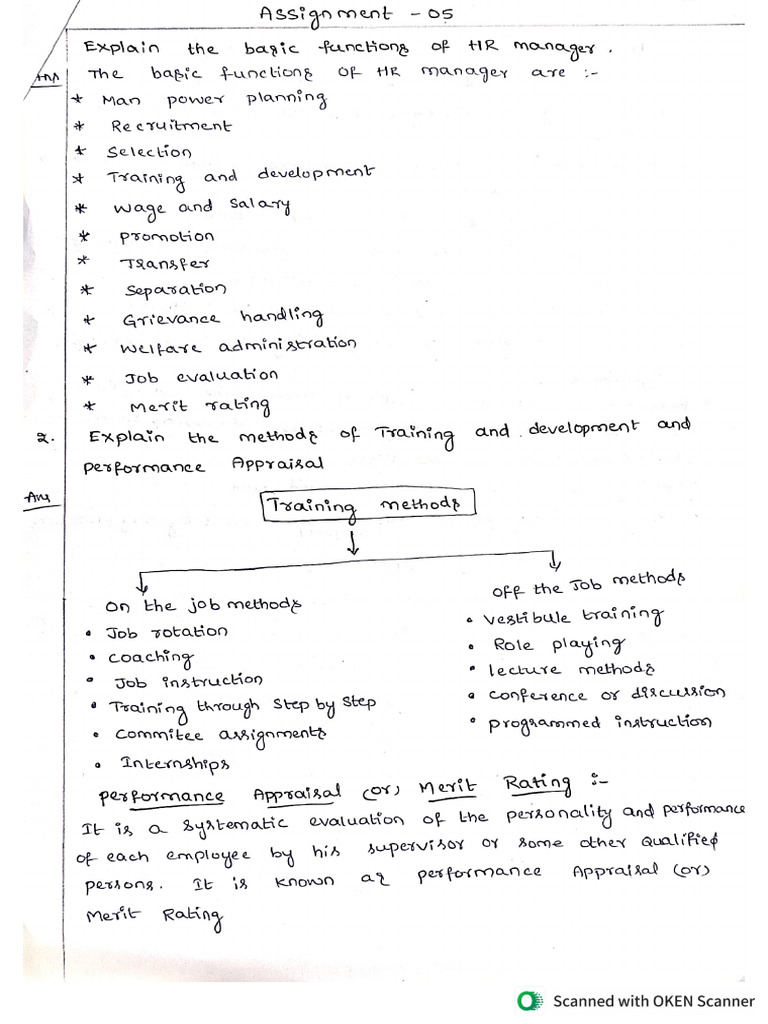 Assignment - 05
Explain the basic functions of HR manager.
Ans The basic functions of HR manager are :-
* Man power planning
* Recruitment
* Selection
* Training and development
* Wage and Salary
* Promotion
* Transfer
* Separation
* Grievance handling
* Welfare administration
* Job evaluation
* Merit rating
2. Explain the methods of Training and development and
performance Appraisal
Ans
Training methods
On the job methods
• Job rotation
• Coaching
• Job instruction
• Training through Step by Step
• Commitee assignments
• Internships
Off the Job methods
• Vestibule training
• Role playing
• lecture methods
• Conference or discussion
• programmed instruction
performance Appraisal (or) Merit Rating :-
It is a systematic evaluation of the personality and performance
of each employee by his supervisor or some other qualified
persons. It is known as performance Appraisal (or)
Merit Rating
Scanned with OKEN Scanner